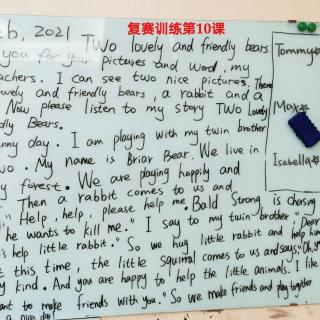 复赛训练第10课
eb, 2021 Two lovely and friendly bears
you for your pictures and word, my
achers. I can see two nice pictures. There
ovely and friendly bears, a rabbit and a
Now please listen to my story Two Lovely
dly Bears.
nny day. I am playing with my twin brother
wo. My name is Briar Bear. We live in
y forest. We are playing happily and
Then a rabbit comes to us and
"Help, help, please help me. Bald Strong is chasing
he wants to kill me." I say to my twin brother "Dear
's help little rabbit." So we hug little rabbit and
t this time, the little squirral comes to us and says,
y kind. And you are happy to help the little animals. I like
ant to make friends with you." So we make friends and play together
a nice day!
Tommy
Max
Isabella